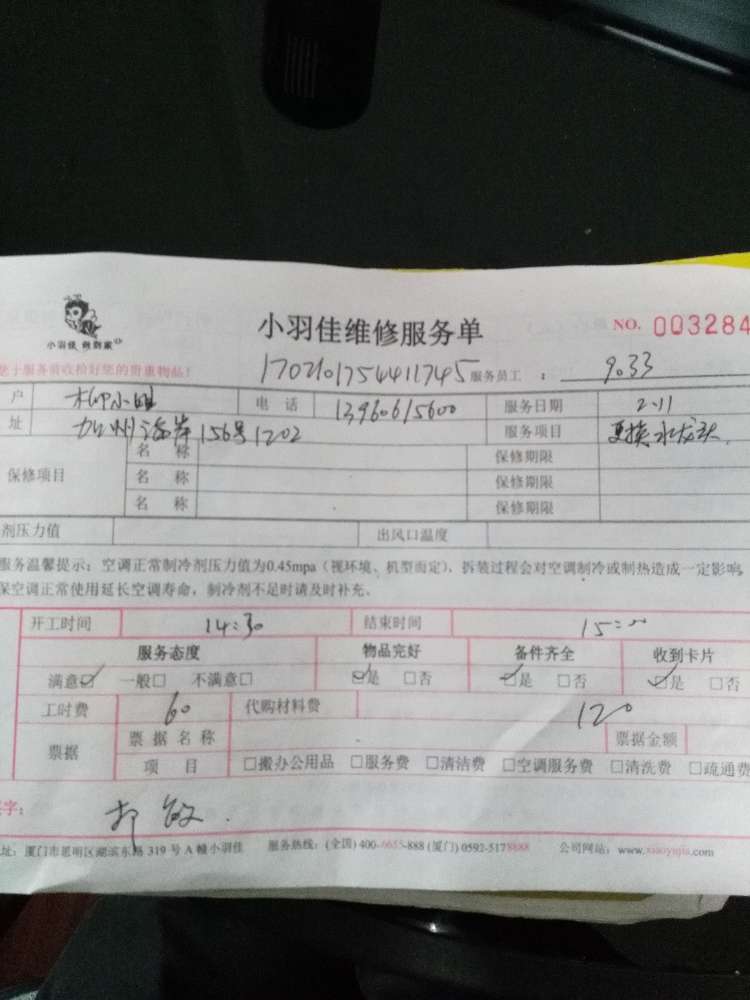 小羽佳 例到家
小羽佳维修服务单
NO. 003284
您于服务前收拾好您的贵重物品!
170210175441745 服务员工 : 9033
户 柳小姐 电话 13960615600 服务日期 2.11
址 加州海岸156号1202 服务项目 更换水龙头.
保修项目
名 称 保修期限
名 称 保修期限
名 称 保修期限
剂压力值 出风口温度
服务温馨提示: 空调正常制冷剂压力值为0.45mpa(视环境、机型而定)、拆装过程会对空调制冷或制热造成一定影响,
保空调正常使用延长空调寿命, 制冷剂不足时请及时补充。
开工时间 14:30 结束时间 15:00
服务态度 物品完好 备件齐全 收到卡片
满意☑ 一般□ 不满意□ ☑是 □否 ☑是 □否 ☑是 □否
工时费 60 代购材料费 120
票据 票据名称 票据金额
项 目 □搬办公用品 □服务费 □清洁费 □空调服务费 □清洗费 □疏通费
字:
址: 厦门市思明区湖滨东路 319 号 A 幢小羽佳 服务热线: (全国) 400-6655-888 (厦门) 0592-5178888 公司网站: www.xiaoyujia.com